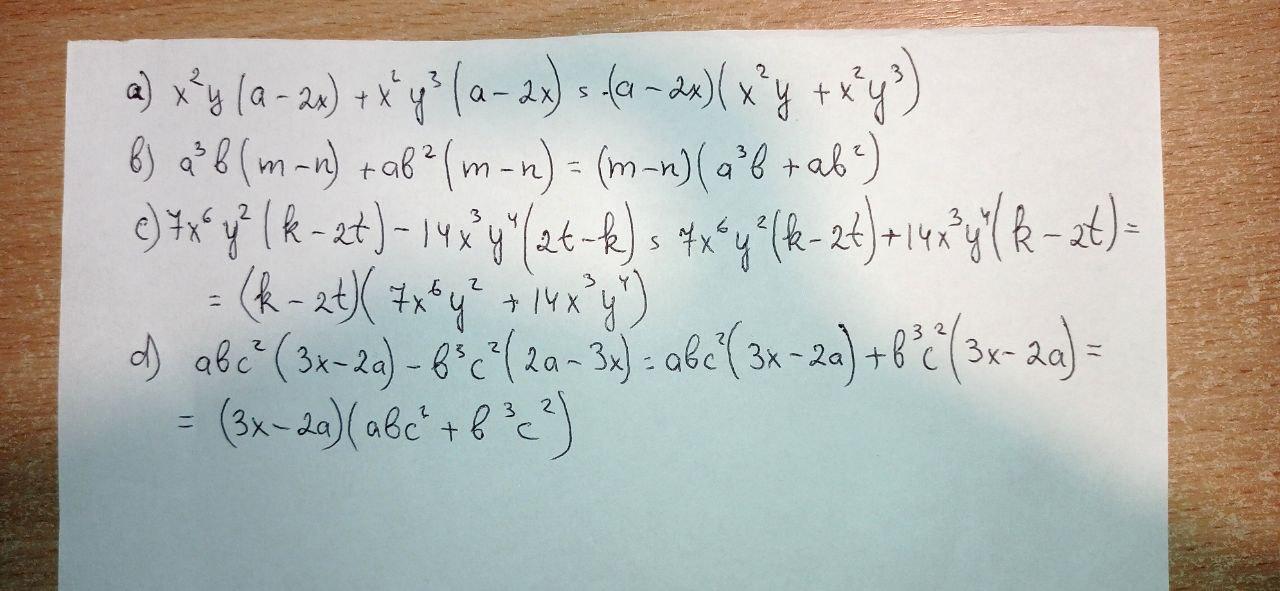 a) x²y(a-2x)+x²y³(a-2x) = (a-2x)(x²y+x²y³)
b) a³b(m-n)+ab²(m-n) = (m-n)(a³b+ab²)
c) 7x⁶y²(k-2t)-14x³y⁴(2t-k) = 7x⁶y²(k-2t)+14x³y⁴(k-2t)=
= (k-2t)(7x⁶y²+14x³y⁴)
d) abc²(3x-2a)-b³c²(2a-3x) = abc²(3x-2a)+b³c²(3x-2a)=
= (3x-2a)(abc²+b³c²)